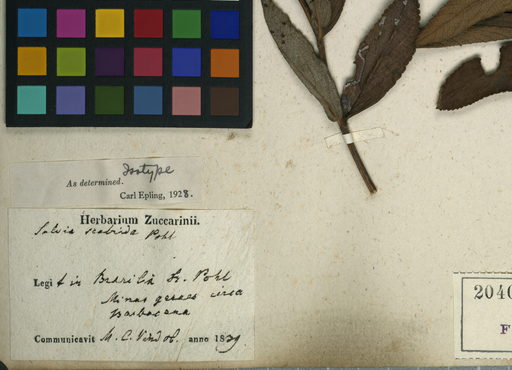 Isotype
As determined.
Carl Epling, 1928.
Herbarium Zuccarinii.
Salvia scabrida Pohl
Legit in Brasilia Pohl
Minas geraes circa
Barbacena
Communicavit M. C. Vind. anno 1839
2040
F